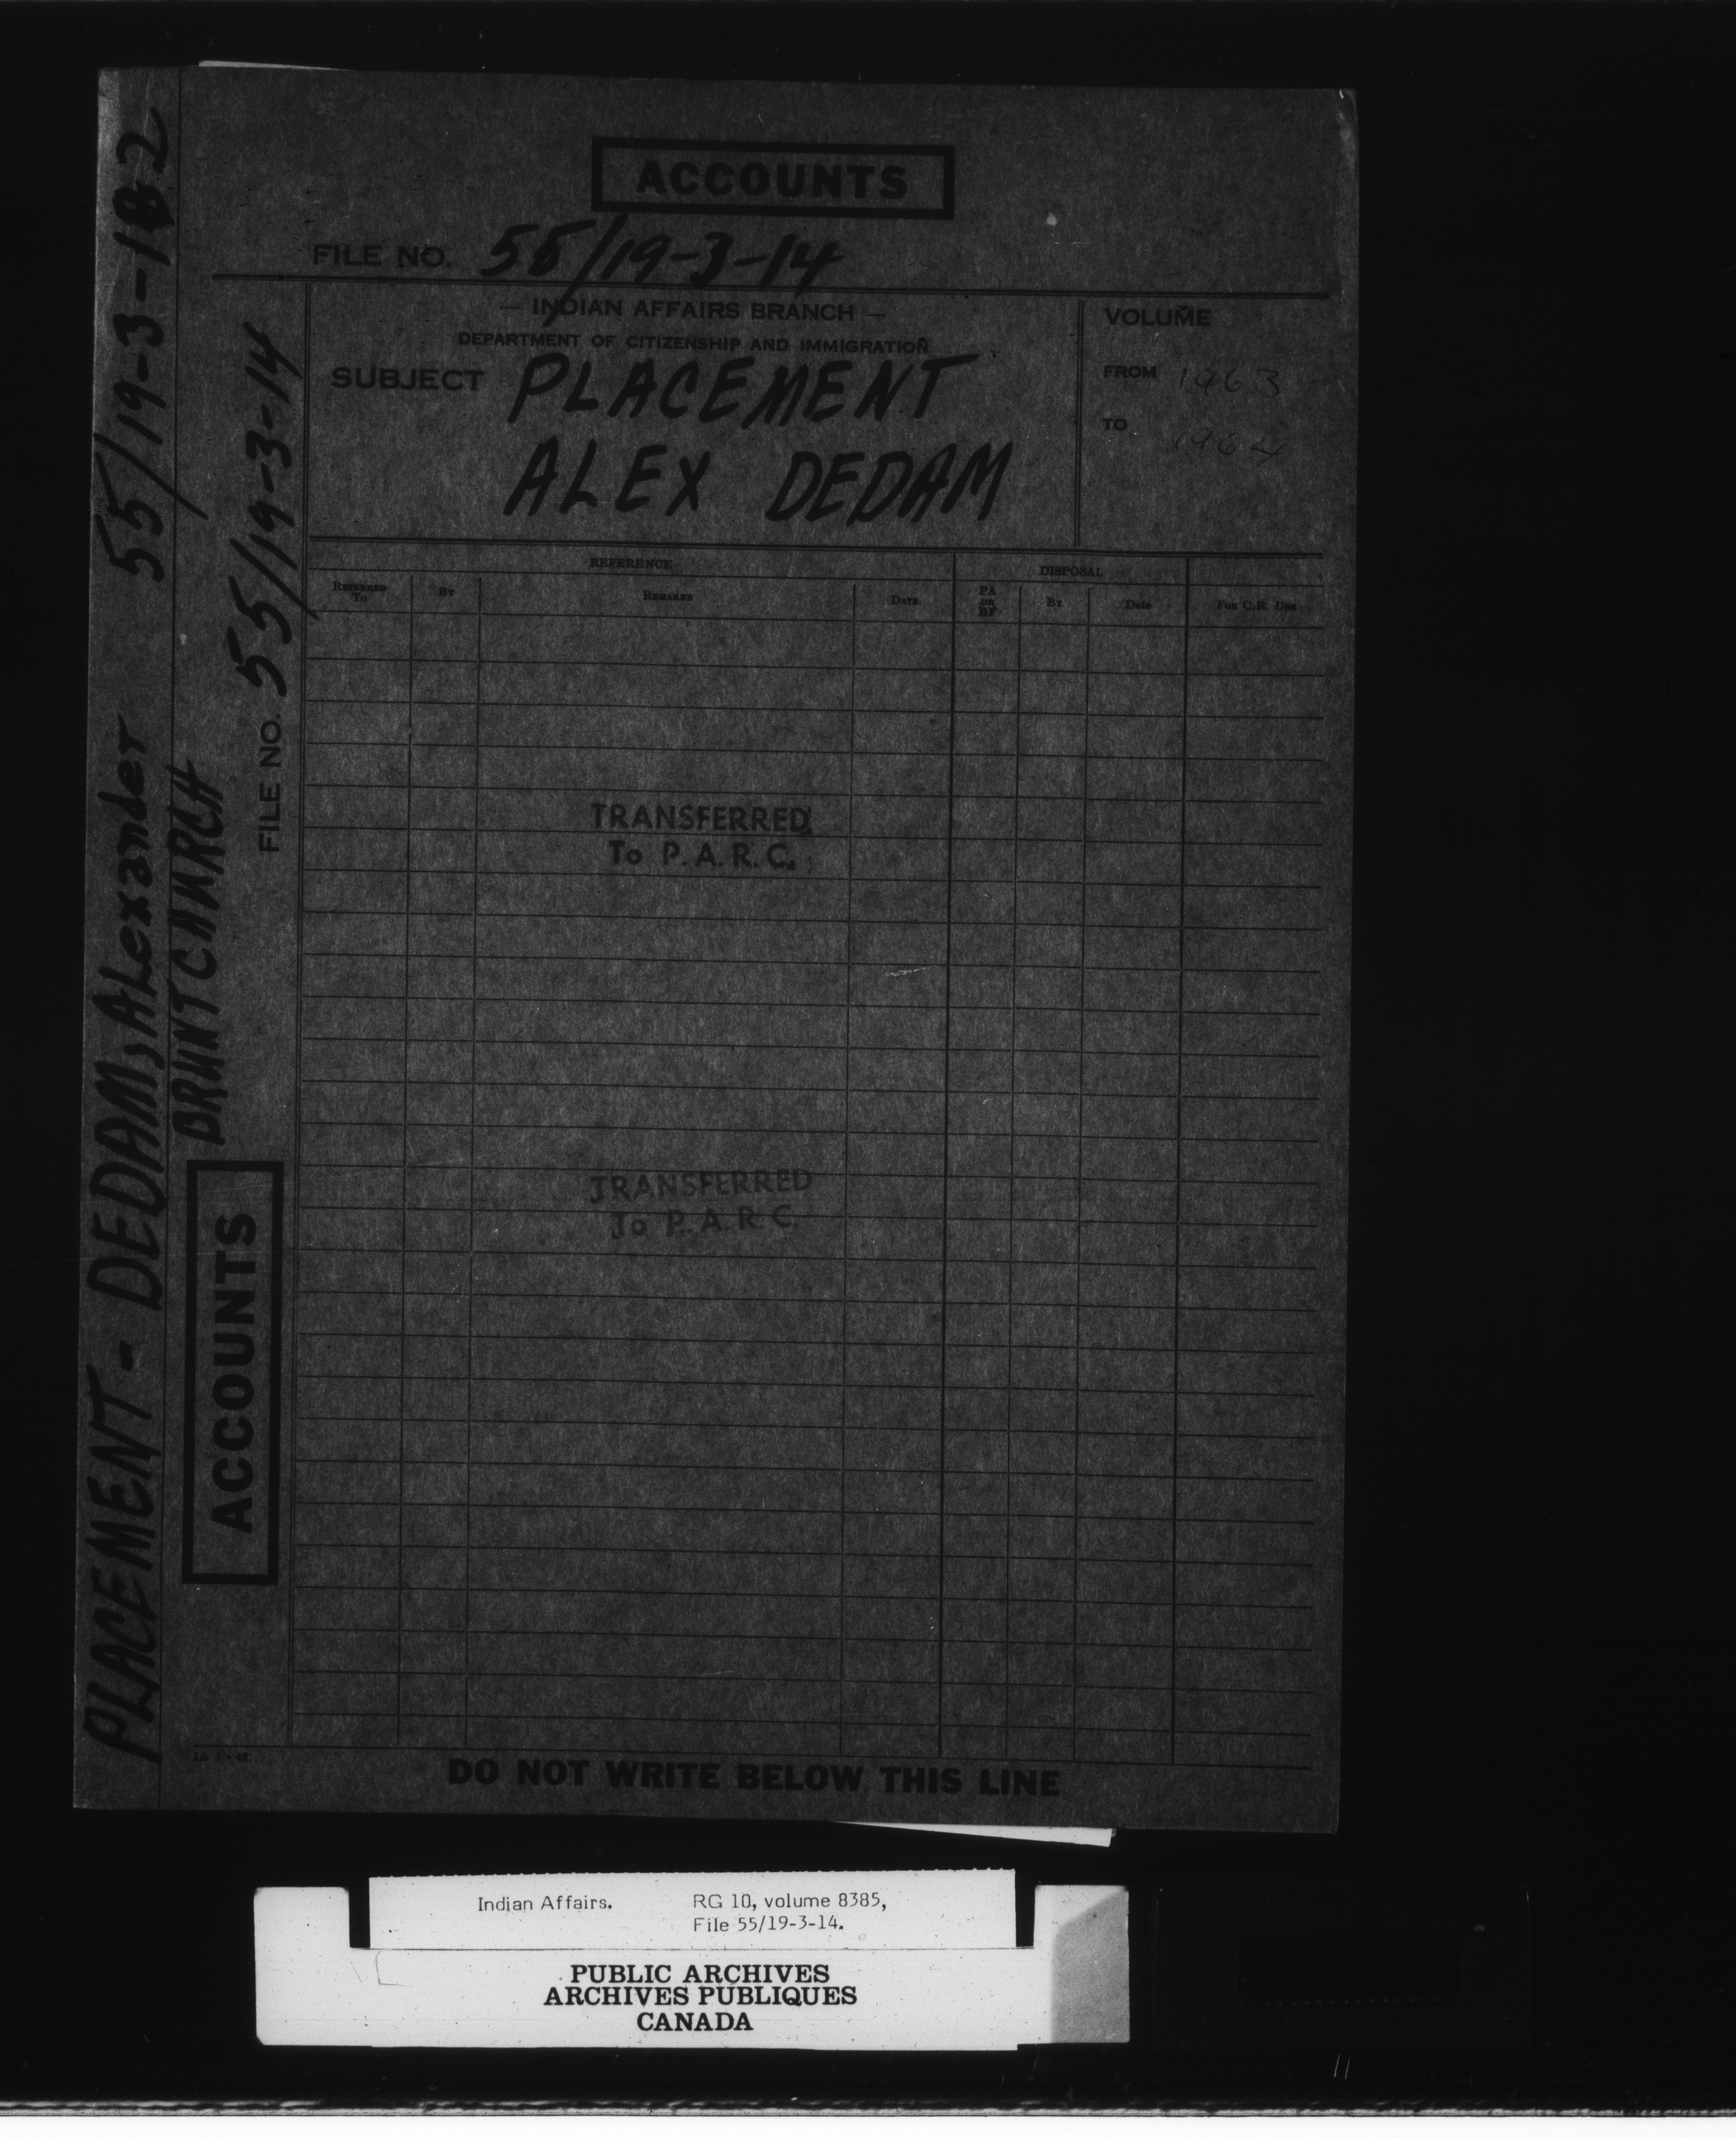 ACCOUNTS
FILE NO. 55/19-3-14
— INDIAN AFFAIRS BRANCH —
DEPARTMENT OF CITIZENSHIP AND IMMIGRATION
SUBJECT PLACEMENT
ALEX DEDAM
VOLUME
FROM 1963
TO 1964
REFERENCE
DISPOSAL
REFERRED TO
BY
REMARKS
DATE
PA OR BF
BY
Date
FOR C.R. USE
TRANSFERRED
To P.A.R.C.
TRANSFERRED
To P.A.R.C.
DO NOT WRITE BELOW THIS LINE
IA 1-42
PLACEMENT - DEDAM, ALexander 55/19-3-18-2
BRUNTCHURCH
FILE NO. 55/19-3-14
ACCOUNTS
Indian Affairs. RG 10, volume 8385,
File 55/19-3-14.
PUBLIC ARCHIVES
ARCHIVES PUBLIQUES
CANADA